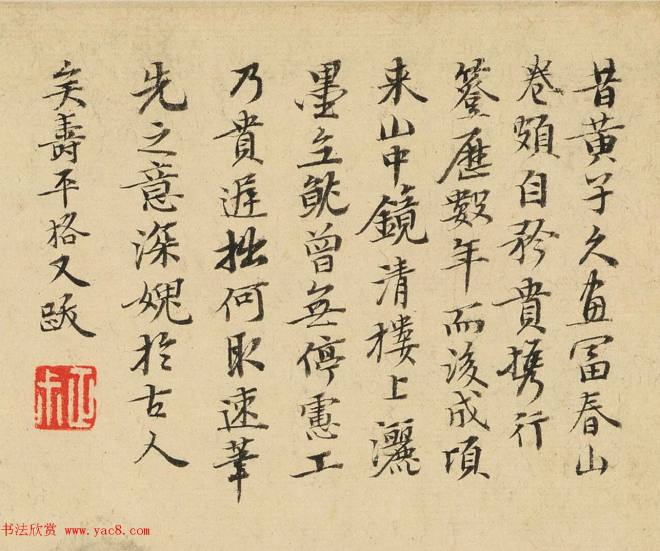 昔黄子久画富春山
卷頗自矜貴携行
簦歷數年而後成頃
来山中鏡清樓上灑
墨立就曾無停慮工
乃貴遲拙何取速筆
先之意深媿於古人
矣壽平格又跋
正叔
书法欣赏 www.yac8.com